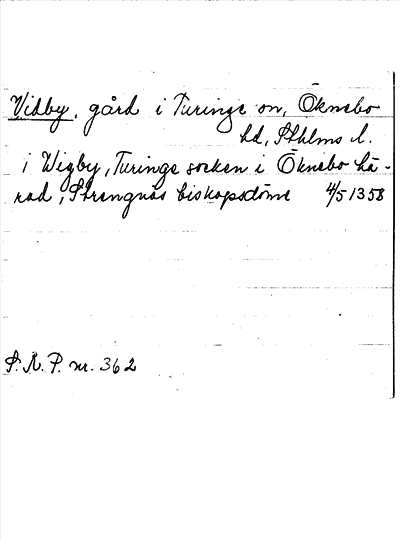 Vidby, gård i Turinge sn, Öknebo
hd, Sthlms l.
i Wigby, Turinge socken i Öknebo hä-
rad, Strengnäs biskopsdöme 4/5 1358
S. R. P. nr. 362